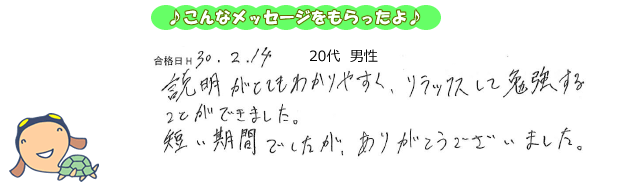 ♪こんなメッセージをもらったよ♪
合格日H30.2.14 20代 男性
説明がとてもわかりやすく、リラックスして勉強する
ことができました。
短い期間でしたが、ありがとうございました。